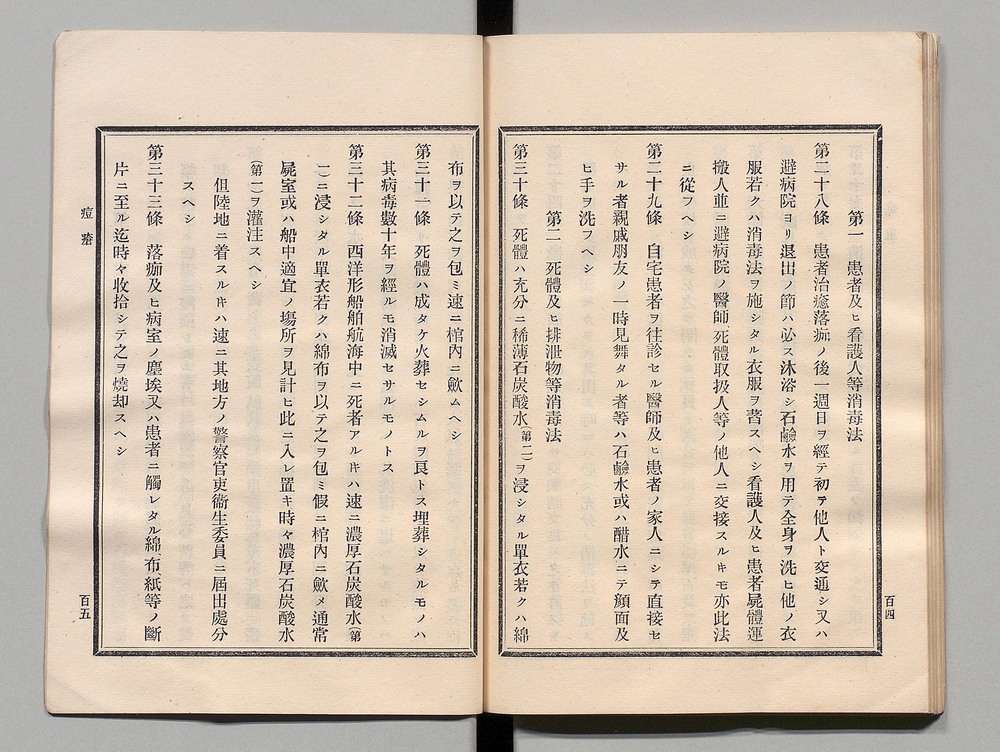 第一　患者及ヒ看護人等消毒法
第二十八條　患者治癒落痂ノ後一週日ヲ經テ初テ他人ト交通シ又ハ
避病院ヨリ退出ノ節ハ必ス沐浴シ石鹼水ヲ用テ全身ヲ洗ヒ他ノ衣
服若クハ消毒法ヲ施シタル衣服ヲ著スヘシ看護人及ヒ患者屍體運
搬人並ニ避病院ノ醫師死體取扱人等ノ他人ニ交接スルキモ亦此法
ニ從フヘシ
第二十九條　自宅患者ヲ往診セル醫師及ヒ患者ノ家人ニシテ直接セ
サル者親戚朋友ノ一時見舞タル者等ハ石鹼水或ハ醋水ニテ顔面及
ヒ手ヲ洗フヘシ
第二　死體及ヒ排泄物等消毒法
第三十條　死體ハ充分ニ稀薄石炭酸水(第二)ヲ浸シタル單衣若クハ綿
百四
布ヲ以テ之ヲ包ミ速ニ棺內ニ歛ムヘシ
第三十一條　死體ハ成タケ火葬セシムルヲ良トス埋葬シタルモノハ
其病毒數十年ヲ經ルモ消滅セサルモノトス
第三十二條　西洋形船舶航海中ニ死者アルキハ速ニ濃厚石炭酸水(第
一)ニ浸シタル單衣若クハ綿布ヲ以テ之ヲ包ミ假ニ棺內ニ歛メ通常
屍室或ハ船中適宜ノ塲所ヲ見計ヒ此ニ入レ置キ時々濃厚石炭酸水
(第一)ヲ灌注スヘシ
但陸地ニ着スルキハ速ニ其地方ノ警察官吏衞生委員ニ屆出處分
スヘシ
第三十三條　落痂及ヒ病室ノ塵埃又ハ患者ニ觸レタル綿、布紙等ノ斷
片ニ至ル迄時々收拾シテ之ヲ燒却スヘシ
痘瘡
百五